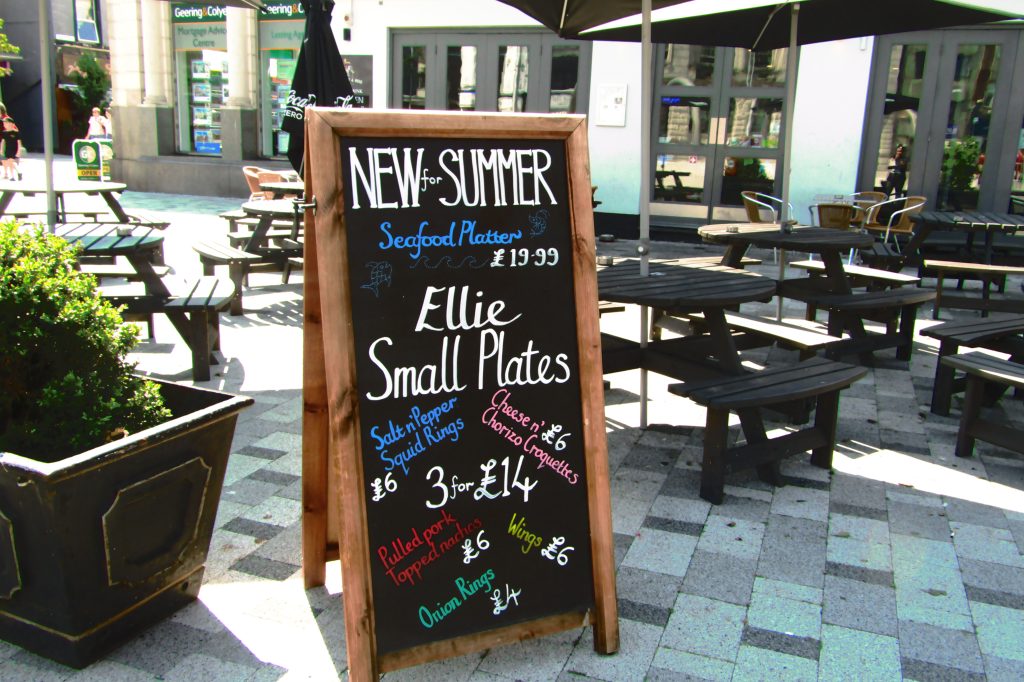 Geering & Colye
Mortgage Advice
Centre
Geering & Co
OPEN
NEW for SUMMER
Seafood Platter
£19.99
Ellie
Small Plates
Salt n' Pepper
Squid Rings
£6
Cheese n'
Chorizo Croquettes
£6
3 for £14
Pulled pork
Topped nachos
£6
Wings
£6
Onion Rings
£4